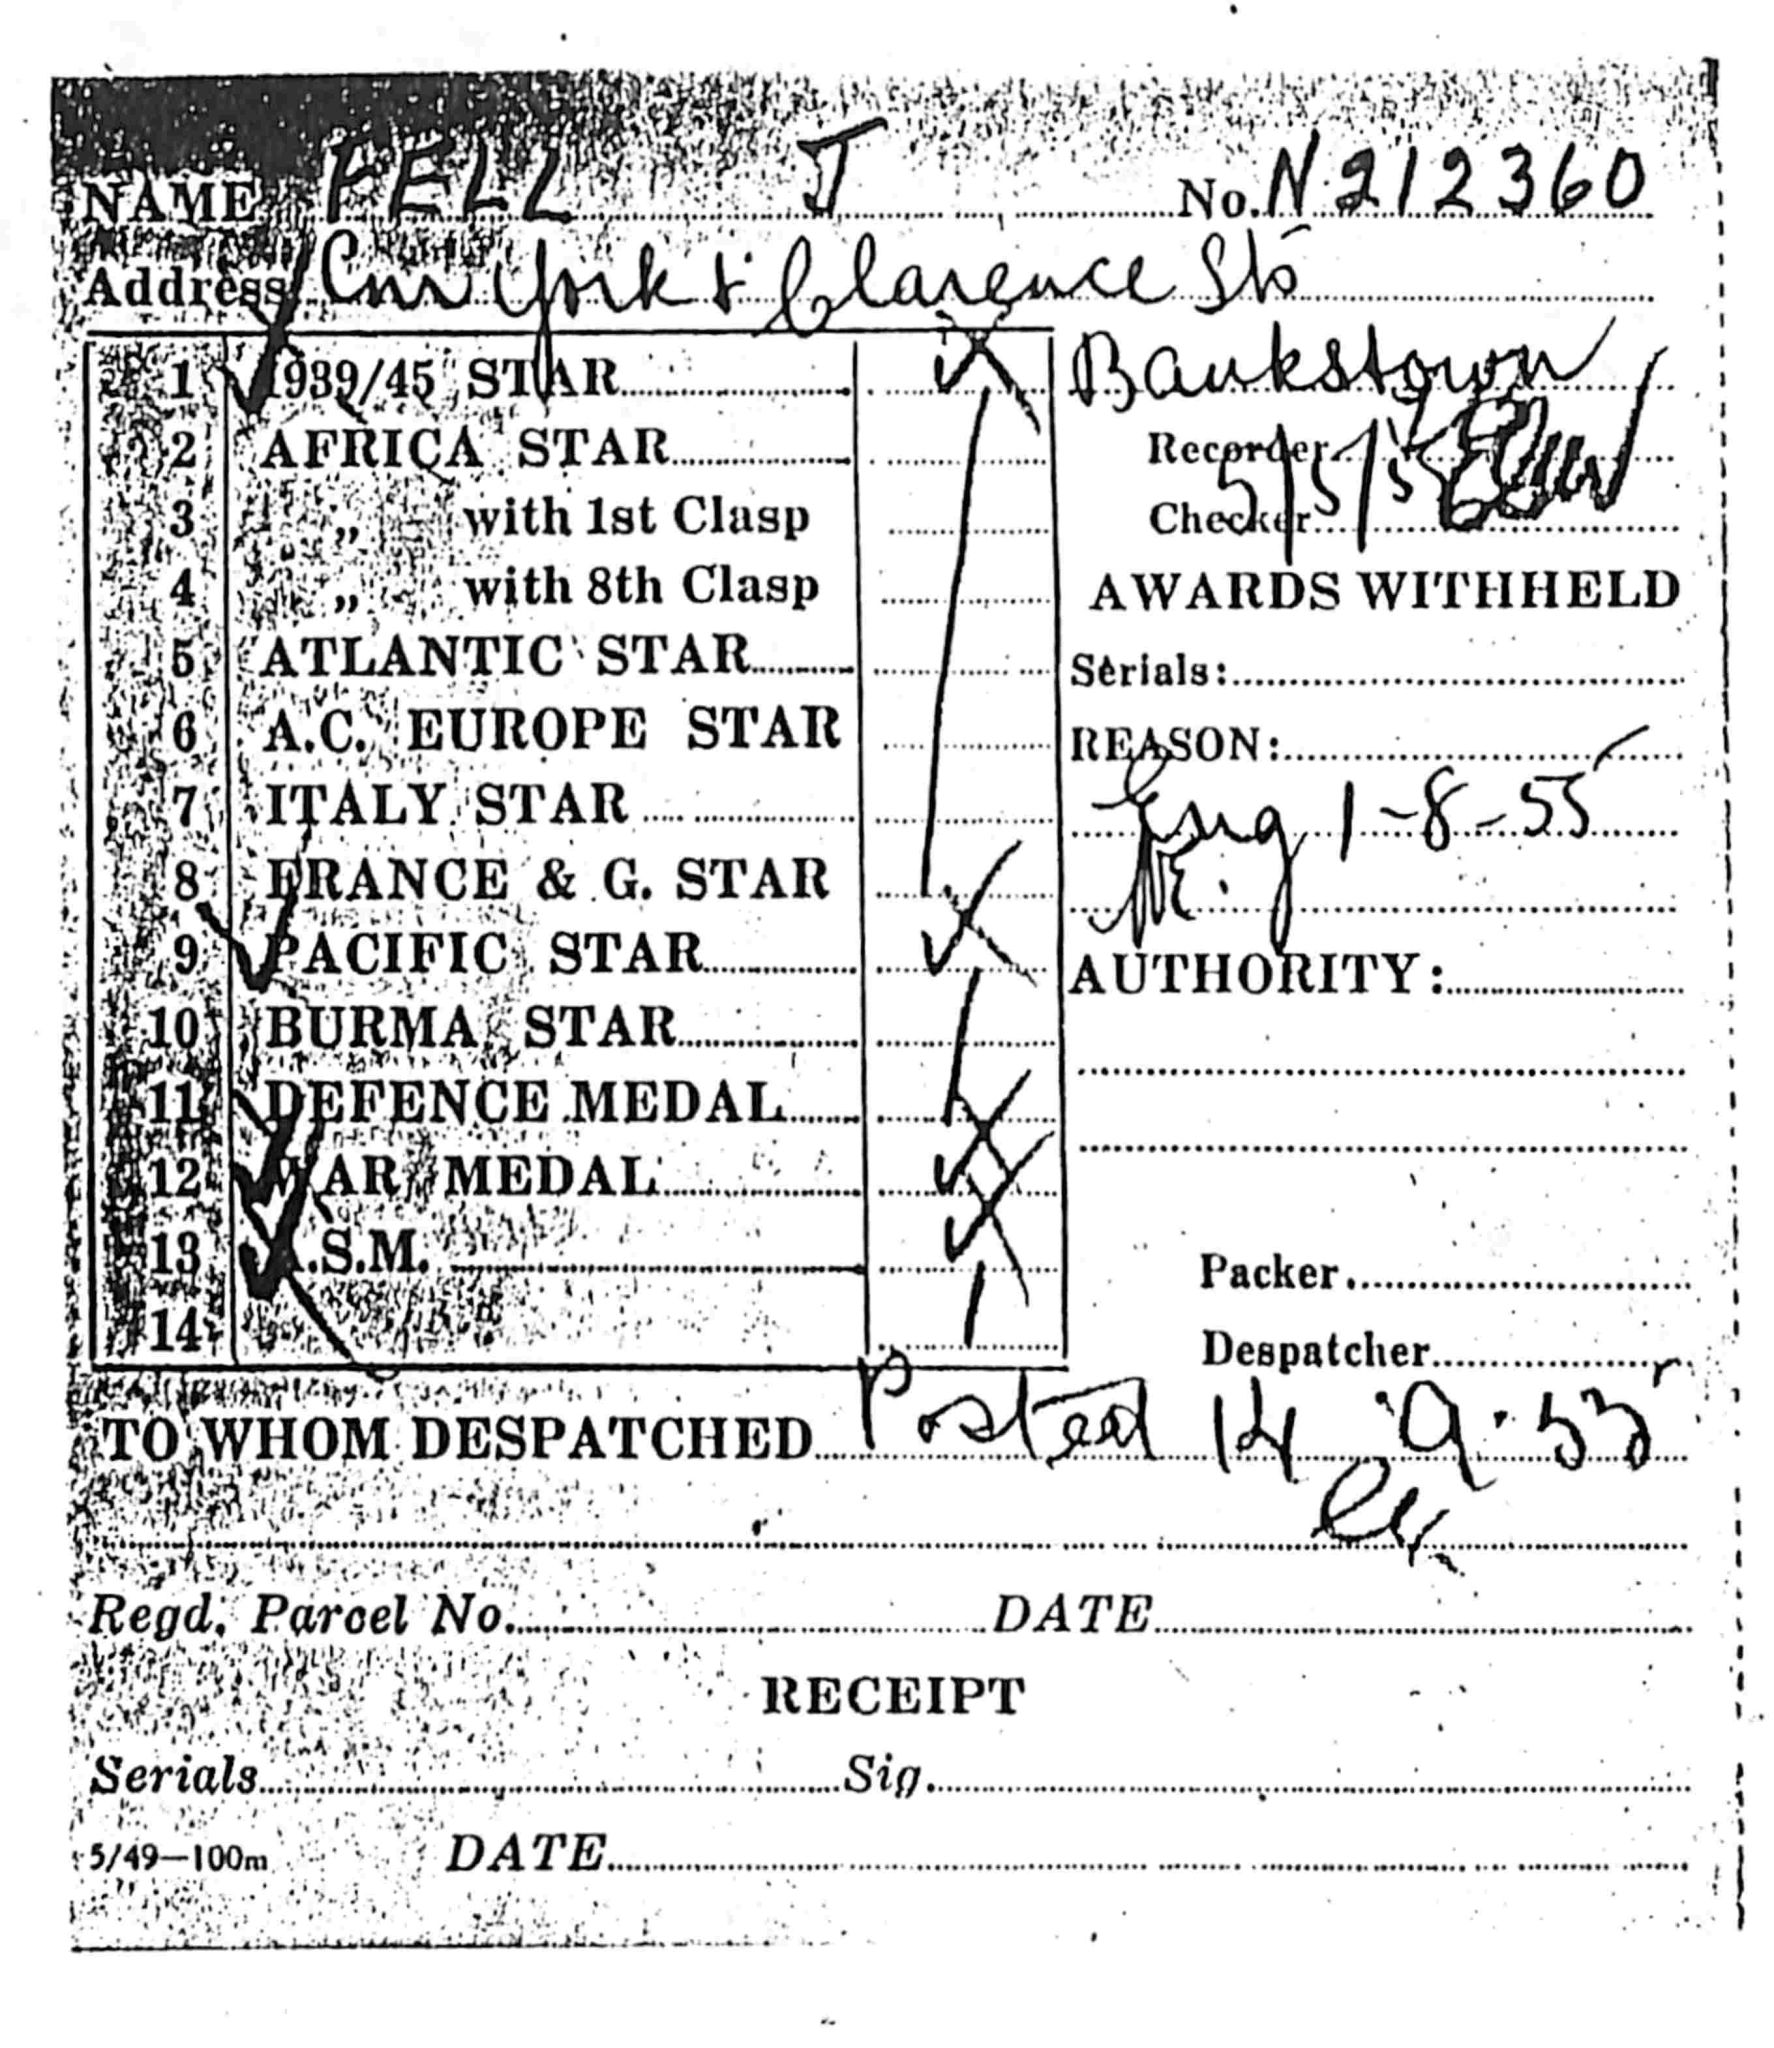 NAME FELL J No. N 212360
Address Cnr York & Clarence Sts
Bankstown
1 1939/45 STAR
2 AFRICA STAR
3 „ with 1st Clasp
4 „ with 8th Clasp
5 ATLANTIC STAR
6 A.C. EUROPE STAR
7 ITALY STAR
8 FRANCE & G. STAR
9 PACIFIC STAR
10 BURMA STAR
11 DEFENCE MEDAL
12 WAR MEDAL
13 A.S.M.
14
Recorder
Checker
AWARDS WITHHELD
Serials:
REASON:
Eng 1-8-55
AUTHORITY:
Packer
Despatcher
TO WHOM DESPATCHED Posted 14.9.55
Regd. Parcel No. DATE
RECEIPT
Serials Sig.
5/49—100m DATE